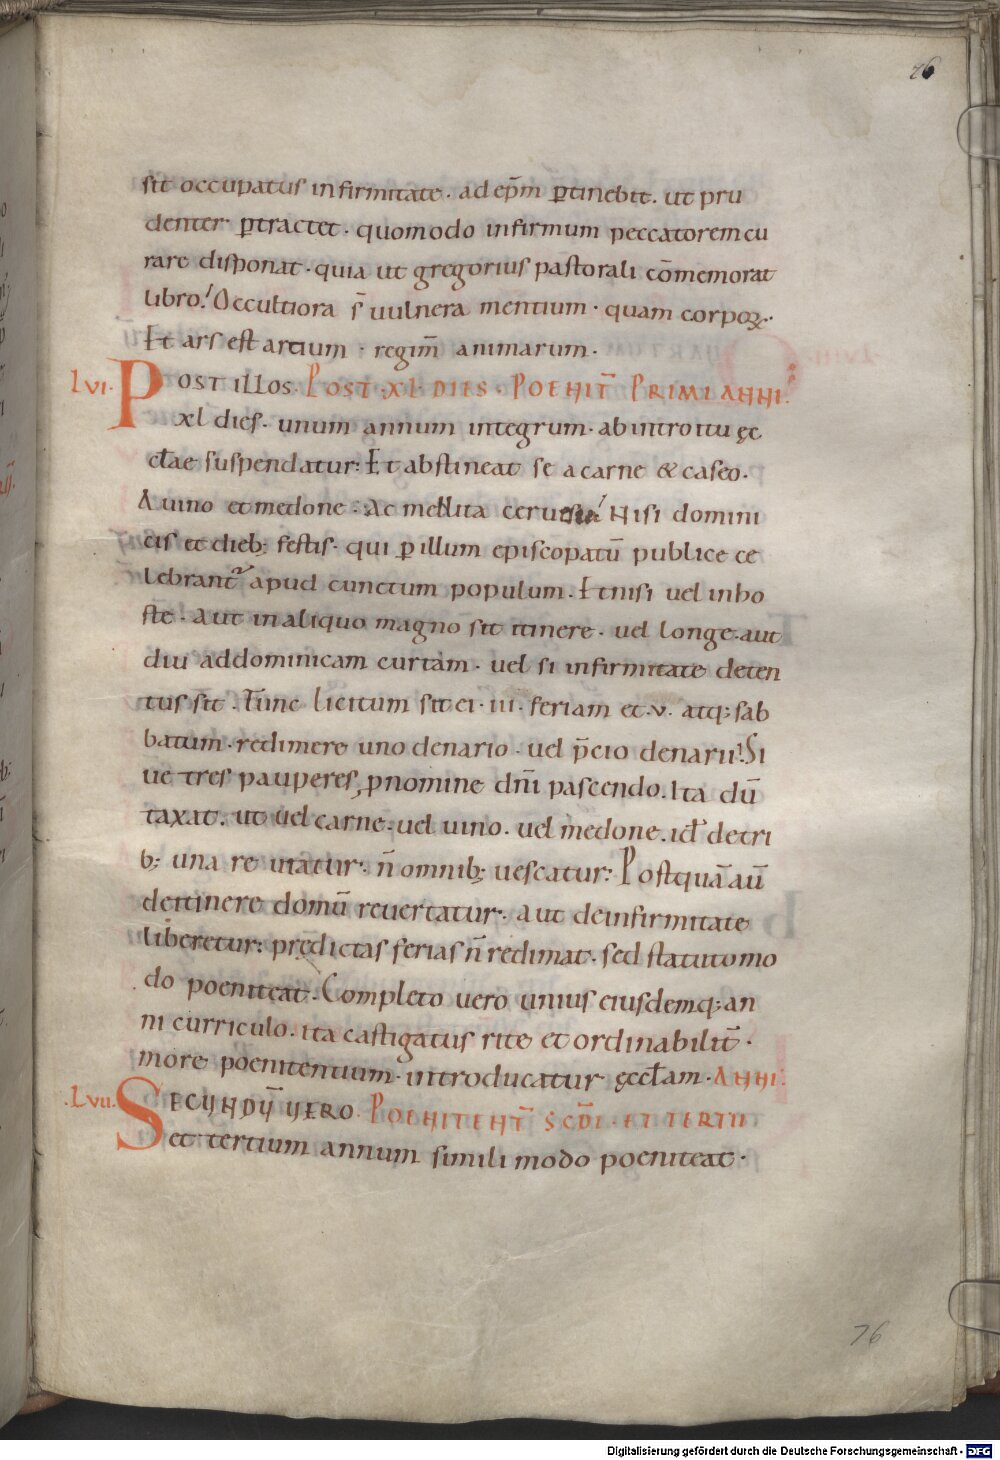 76
sit occupatus in firmitate. ad ep̄m ꝑtinebit. ut pru
denter ꝑtractet. quomodo infirmum peccatorem cu
rare disponat. quia ut gregorius pastorali cōmemorat
libro. Occultiora s̄ uulnera mentium. quam corpoꝝ.
Et ars est artium. regim̄ animarum.
LVI. POST ILLOS. POST XL DIES. POENIT̄ PRIMI ANNI.
xl dies. unum annum integrum. ab introitu ęc
cl̄ae suspendatur: Et abstineat se a carne & caseo.
A uino et medone. Ac mellita ceruesia Nisi domini
cis et dieb; festis. qui ꝑ illum episcopatū publice ce
lebrant᷑ apud cunctum populum. Et nisi uel in ho
ste. Aut in aliquo magno sit itinere. uel longe. aut
diu ad dominicam curtam. uel si infirmitate deten
tus sit. Tunc licitum sit ei. iii. feriam et .v. atq; sab
batum. redimere uno denario. uel p̄cio denarii. Si
ue tres pauperes, ꝓ nomine dn̄i pascendo. Ita dū
taxat. ut uel carne. uel uino. uel medone. id ÷ de tri
b; una re utatur. n̄ omnib; uescatur: Postquā aū
de itinere domū reuertatur. aut de infirmitate
liberetur: prędictas ferias n̄ redimat. sed statuto mo
do poeniteat. Completo uero unius eiusdemq; an
ni curriculo. ita castigatus rite et ordinabilit̄.
more poenitentium. introducatur ęccl̄am. ANNI
LVII. SECUNDŪ UERO. POENITENT̄ SCD̄I. ET TERTII
et tertium annum simili modo poeniteat.
76
Digitalisierung gefördert durch die Deutsche Forschungsgemeinschaft - DFG